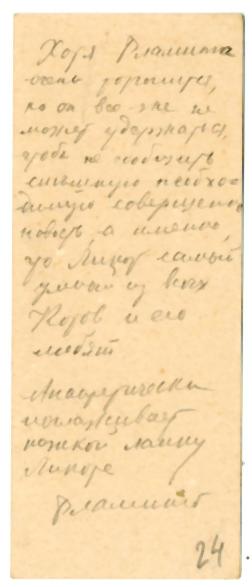 Хотя Фламинга
очень торопится,
но он все-же не
может удержаться,
чтобы не сообщить
необхо-
димую совершенно
новость, а именно,
что Ликот самый
умный из всех
Котов и его
любят
поглаживает
ножкой лапку
Фламинго
24